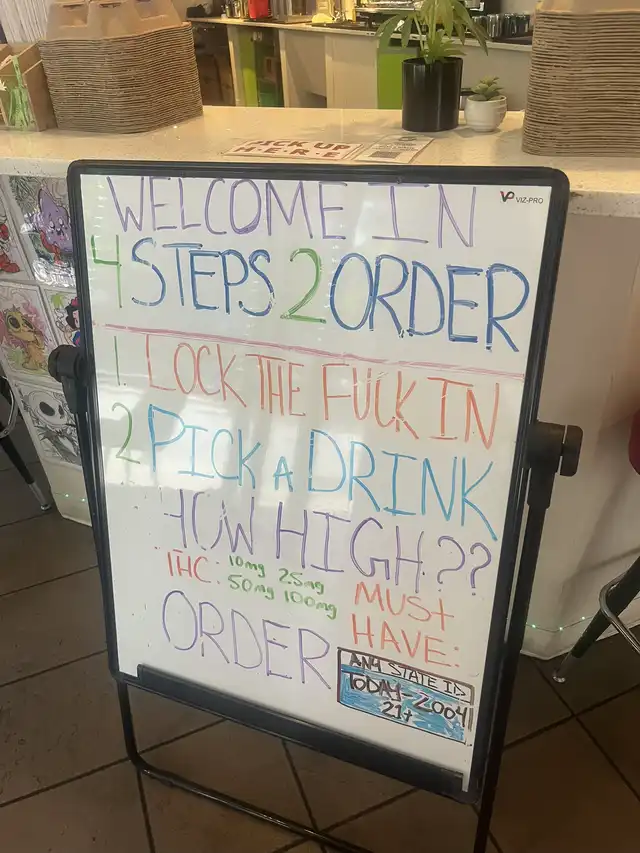 PICK UP
H·E·R·E
VP VIZ-PRO
WELCOME IN
4 STEPS 2 ORDER
1. LOCK THE FUCK IN
2 PICK A DRINK
HOW HIGH??
THC: 10mg 25mg
50mg 100mg
MUST
HAVE:
ORDER
ANY STATE ID
TODAY-2004
21+